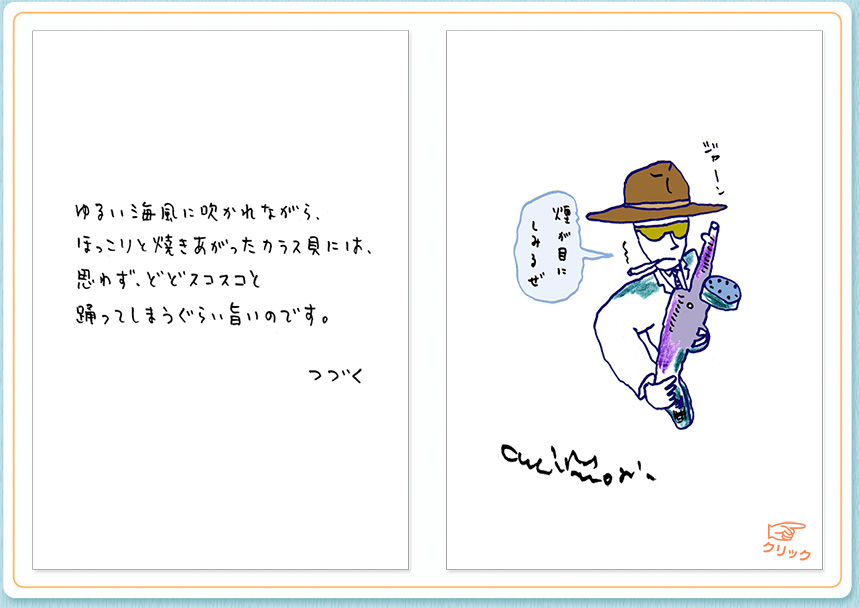 ゆるい海風に吹かれながら、
ほっこりと焼きあがったカラス貝には、
思わず、どどスコスコと
踊ってしまうぐらい旨いのです。
つづく
ジャーン
煙が目に
しみるぜ
クリック